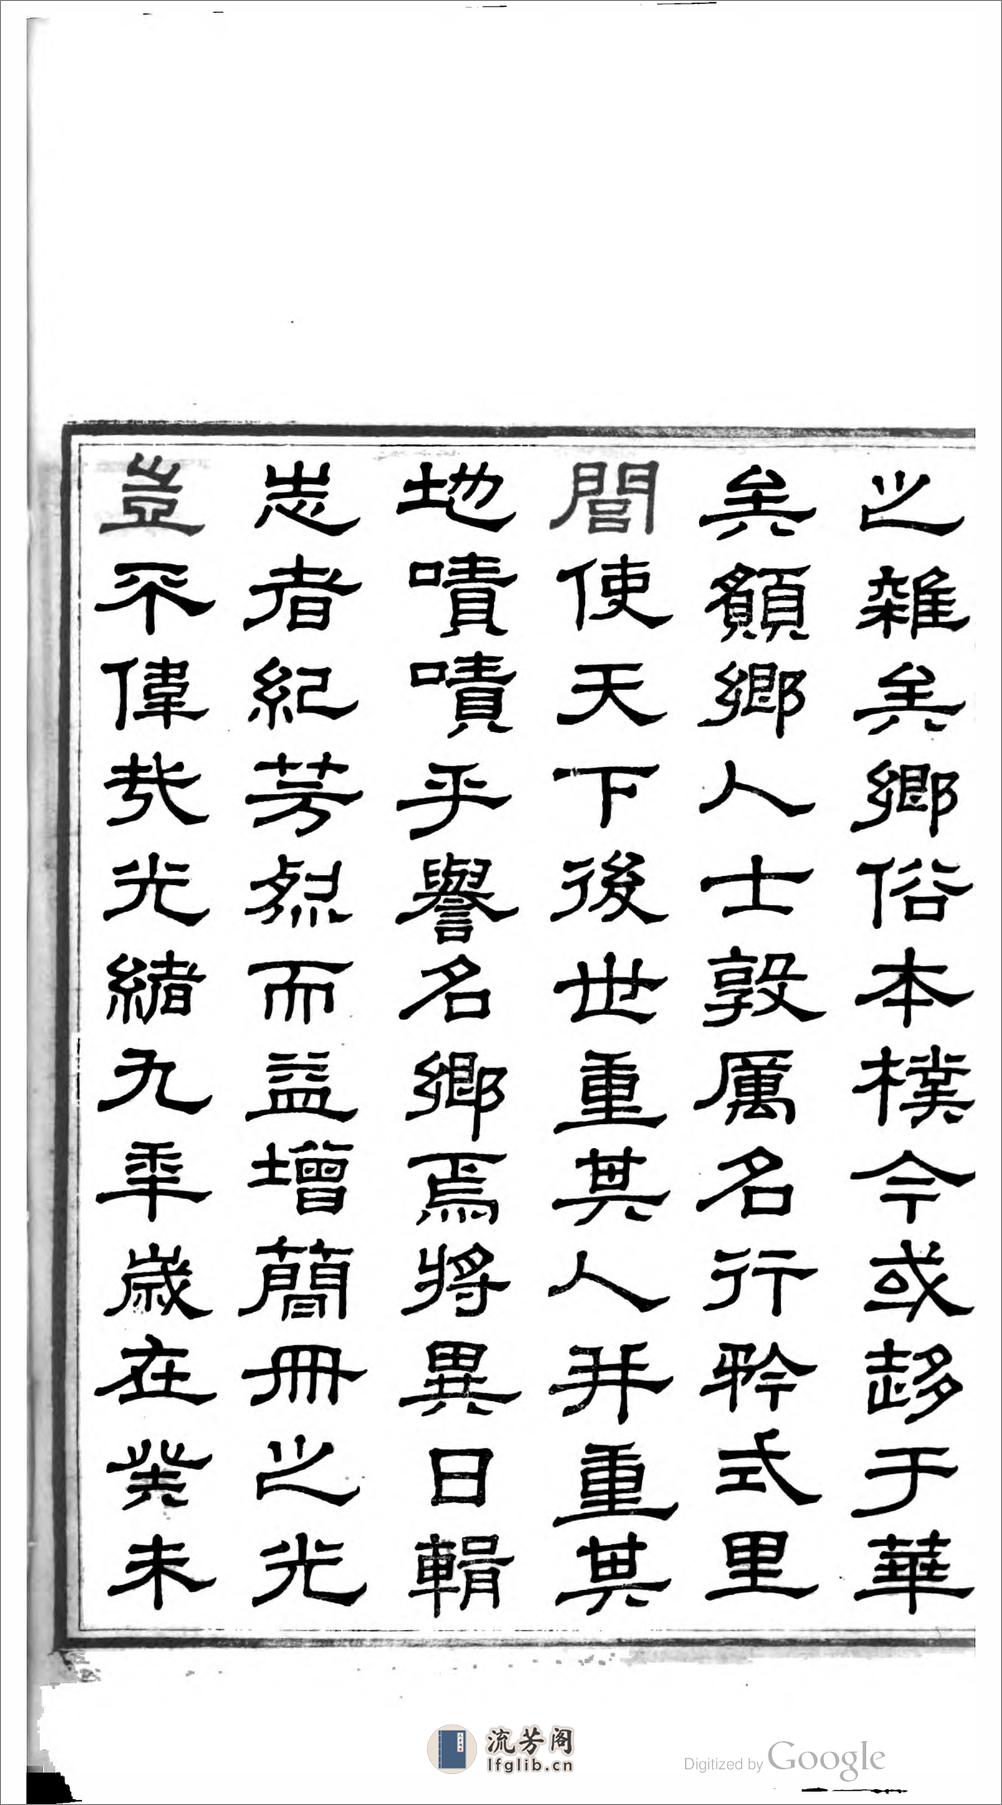 之雜矣鄉俗本樸今或趍于華
矣願鄉人士敦厲名行矜式里
閭使天下後世重其人并重其
地嘖嘖乎譽名鄉焉將異日輯
志者紀芳烈而益增簡冊之光
豈不偉哉光緒九年歲在癸未
流芳阁
lfglib.cn
Digitized by Google